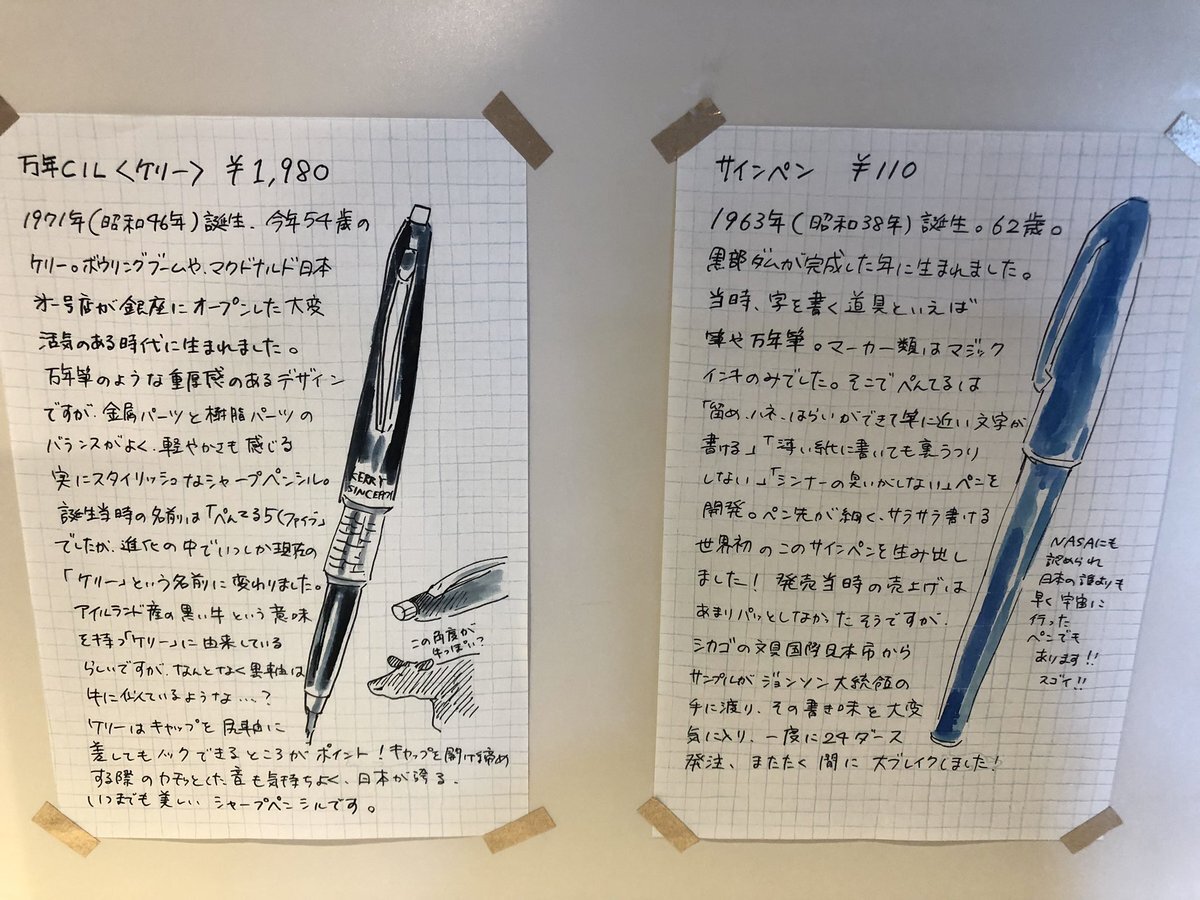 万年CIL〈ケリー〉 ¥1,980
1971年(昭和46年)誕生.今年54歳の
ケリー。ボウリングブームや、マクドナルド日本
1号店が銀座にオープンした大変
活気のある時代に生まれました。
万年筆のような重厚感のあるデザイン
ですが、金属パーツと樹脂パーツの
バランスがよく、軽やかさも感じる
実にスタイリッシュなシャープペンシル。
誕生当時の名前は「ぺんてる5(ファイブ)」
でしたが、進化の中でいつしか現在の
「ケリー」という名前に変わりました。
アイルランド産の黒い牛という意味
を持つ「ケリー」に由来している
らしいですが、なんとなく黒軸は
牛に似ているような…?
ケリーはキャップを尻軸に
差してもノックできるところがポイント!キャップを開け締め
する際のカチッとした音も気持ちよく、日本が誇る、
いつまでも美しいシャープペンシルです。
KERRY
SINCE1971
この角度が
牛っぽい?
サインペン ¥110
1963年(昭和38年)誕生。62歳。
黒部ダムが完成した年に生まれました。
当時、字を書く道具といえば
筆や万年筆。マーカー類はマジック
インキのみでした。そこでぺんてるは
「留め、ハネ、はらいができて筆に近い文字が
書ける」「薄い紙に書いても裏うつり
しない」「シンナーの臭いがしない」ペンを
開発。ペン先が細く、サラサラ書ける
世界初のこのサインペンを生み出し
ました!発売当時の売上げは
あまりパッとしなかったそうですが、
シカゴの文具国際見本市から
サンプルがジョンソン大統領の
手に渡り、その書き味を大変
気に入り、一度に24ダース
発注、またたく間に大ブレイクしました!
NASAにも
認められ
日本の誰よりも
早く宇宙に
行った
ペンでも
あります!!
スゴイ!!